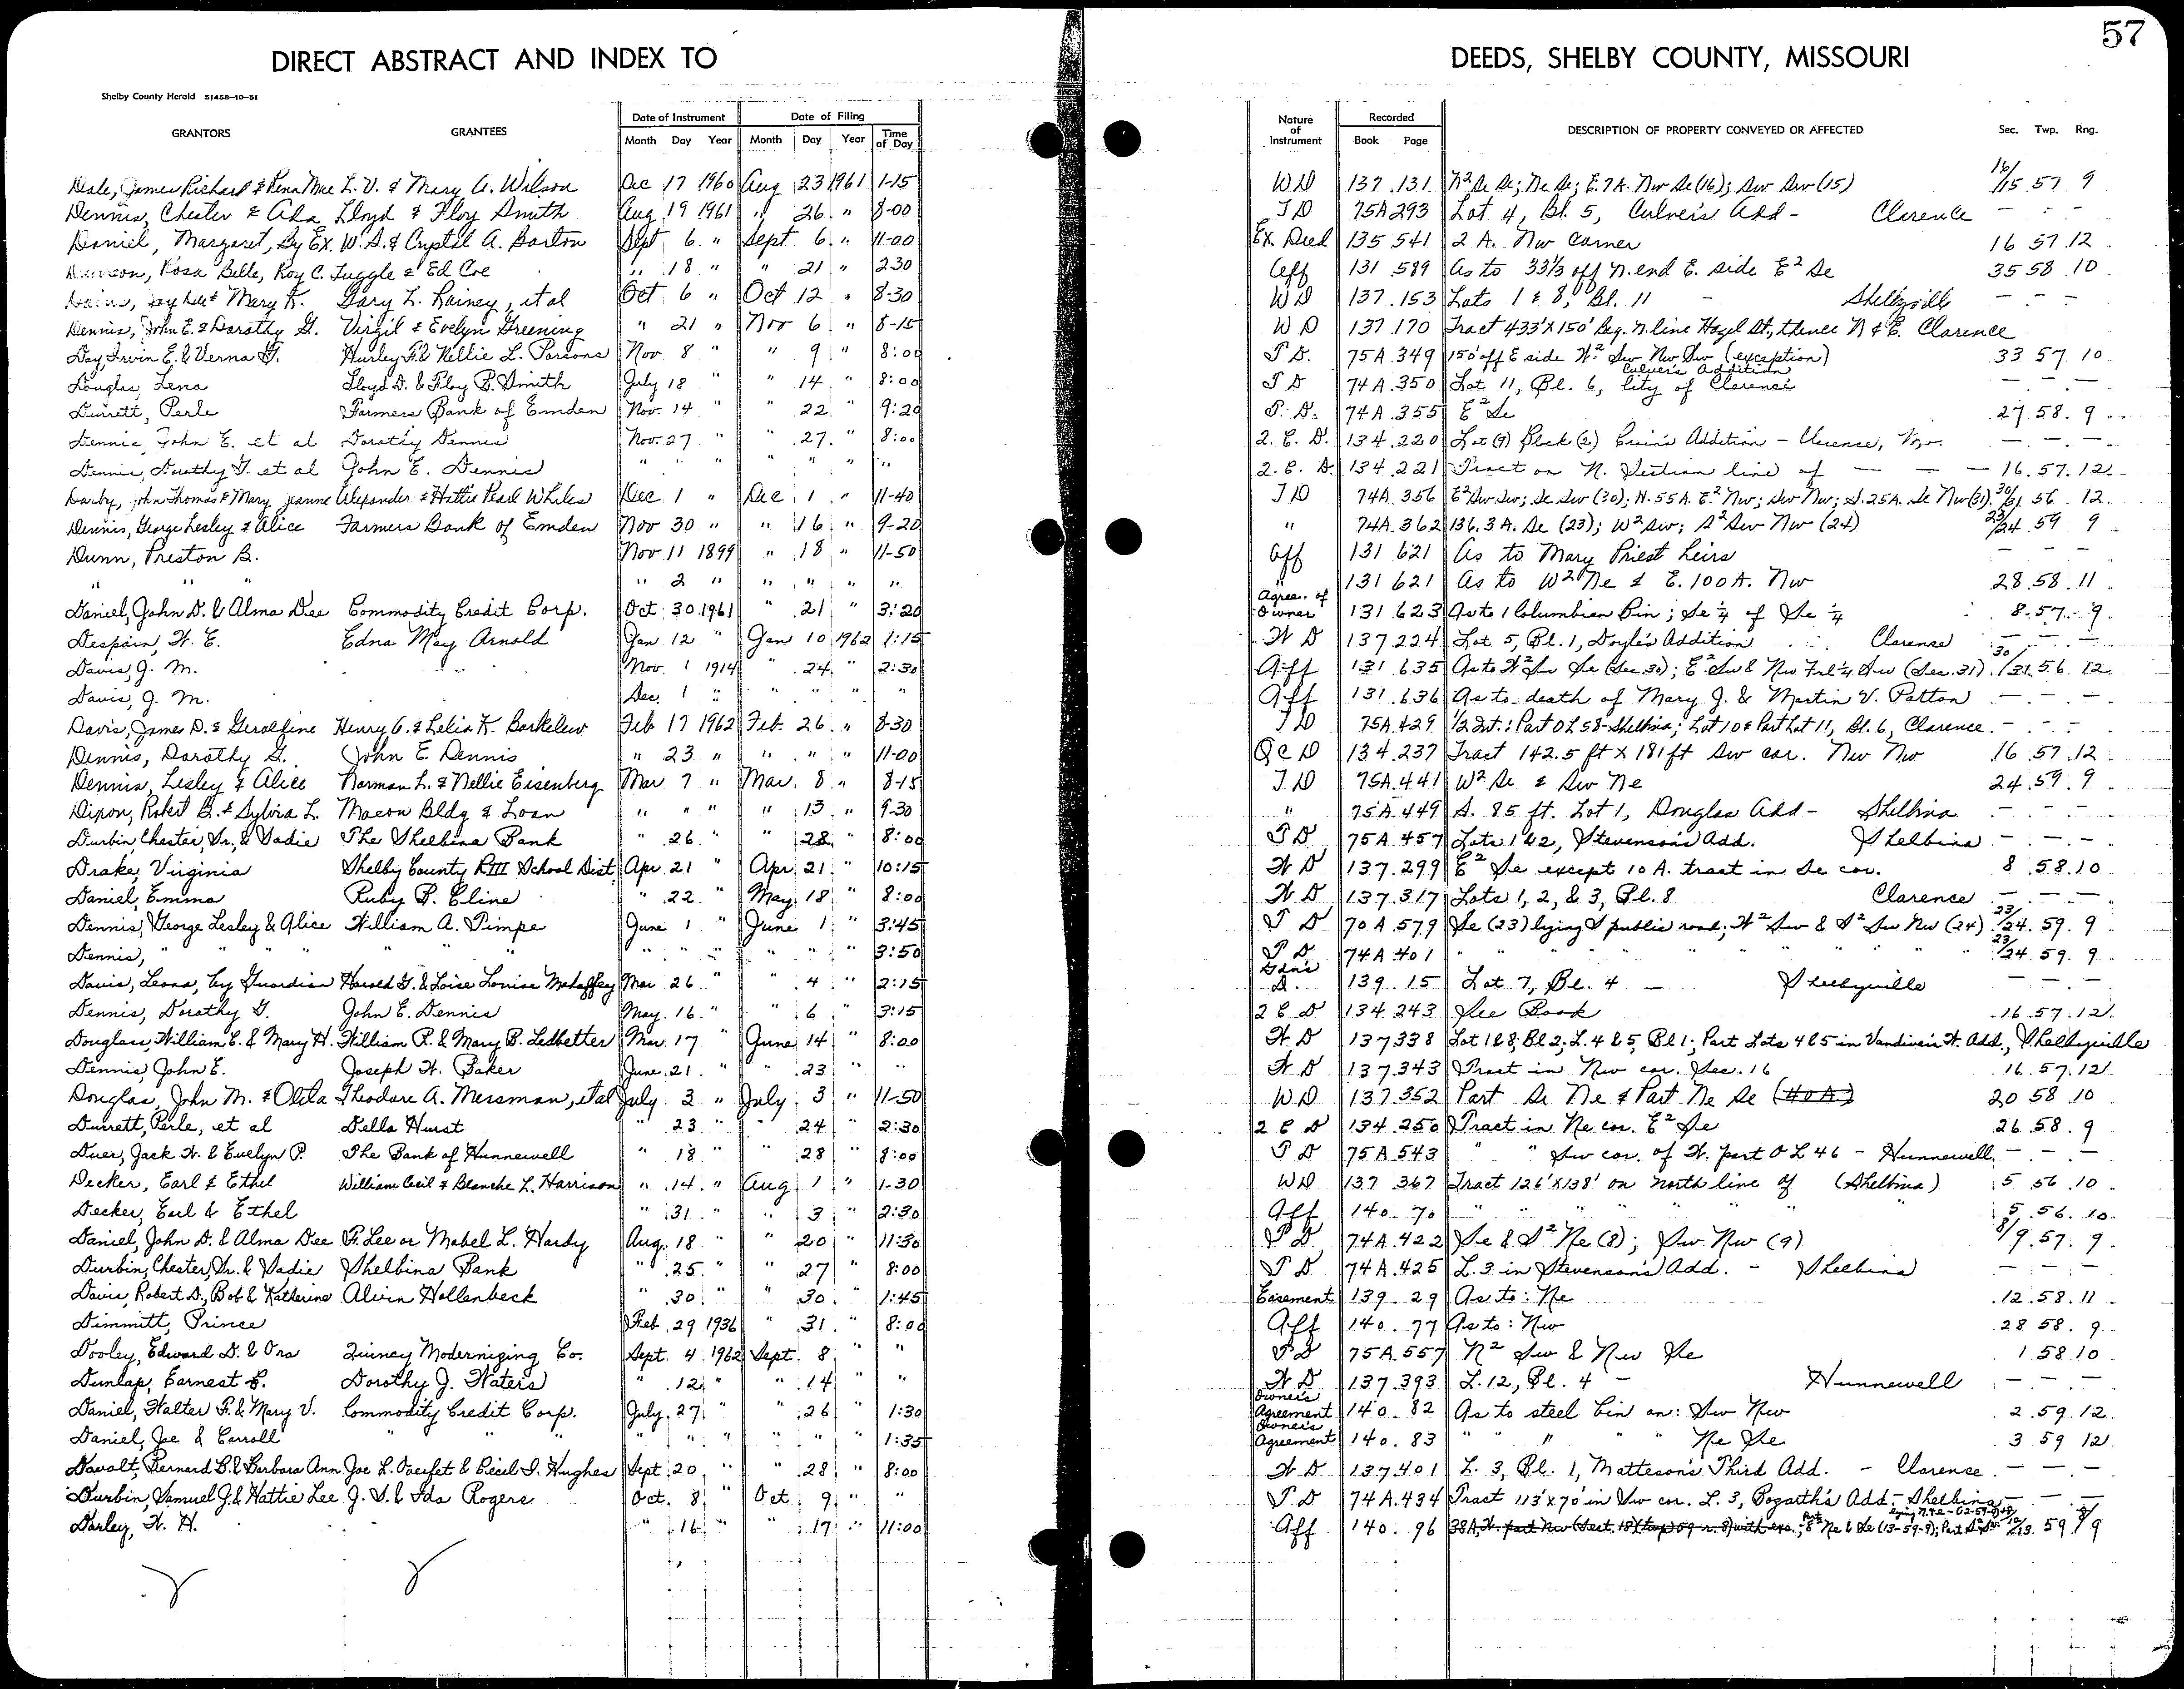 57
DIRECT ABSTRACT AND INDEX TO DEEDS, SHELBY COUNTY, MISSOURI
Shelby County Herald 51458-10-51
GRANTORS GRANTEES Date of Instrument Month Day Year Date of Filing Month Day Year Time of Day Nature of Instrument Recorded Book Page DESCRIPTION OF PROPERTY CONVEYED OR AFFECTED Sec. Twp. Rng.
Dale, James Richard & Rena Mae L. V. & Mary A. Wilson Dec 17 1960 Aug 23 1961 1-15 WD 137 131 N² Se Se; Ne Se; E. 7A. Nw Se (16); Sw Sw (15) 16/15 57 9
Dennis, Chester & Ada Lloyd & Floy Smith Aug 19 1961 " 26 " 8-00 TD 75A 293 Lot 4, Bl. 5, Culver's Add- Clarence - - -
Daniel, Margaret, By Ex. W. S. & Crystal A. Barton Sept 6 " Sept 6 " 11-00 Ex. Deed 135 541 2 A. Nw Corner 16 57 12
Rosa Belle, Roy C. Tuggle & Ed Coe " 18 " " 21 " 230 Aff 131 589 As to 33⅓ off N. end E. side E² Se 35 58 10
Mary K. Gary L. Rainey, et al Oct 6 " Oct 12 " 8-30 WD 137 153 Lots 1 & 8, Bl. 11 - Shelbyville - - -
Dennis, John E. & Dorothy G. Virgil & Evelyn Greening " 21 " Nov 6 " 8-15 WD 137 170 Tract 433'X150' Beg. N. line Hazel St., thence N & E. Clarence
Day, Irvin E. & Verna G. Hurley F. & Nellie L. Parsons Nov. 8 " " 9 " 8:00 T D. 75A 349 150' off E side W² Sw Nw Sw (exception) 33 57 10
Douglas, Lena Lloyd D. & Floy B. Smith July 18 " " 14 " 8:00 T D 74A 350 Lot 11, Bl. 6, Culver's Addition City of Clarence - - -
Durrett, Perle Farmers Bank of Emden Nov. 14 " " 22 " 9:20 T. D. 74A 355 E² Se 27 58 9
Dennis, John E. et al Dorothy Dennis Nov. 27 " " 27. " 8:00 2. C. D. 134 220 Lot (9) Block (2) Addition - Clarence, Mo. - - -
Dennis, Dorothy G. et al John E. Dennis " " " " " " " 2. C. D. 134 221 Tract on N. Section line of - - - 16 57 12
Darby, John Thomas & Mary Jeanne Alexander & Hattie Pearl Whiles Dec 1 " Dec 1 " 11-40 TD 74A 356 E² Sw Sw; Se Sw (30); N. 55A. E.² Nw; Sw Nw; S. 25A. Se Nw (31) 30/31 56 12
Dennis, George Lesley & Alice Farmers Bank of Emden Nov 30 " " 16 " 9-20 " 74A 362 136.3 A. Se (23); W² Sw; S² Sw Nw (24) 23/24 59 9
Dunn, Preston B. Nov 11 1899 " 18 " 11-50 Aff 131 621 As to Mary Priest heirs - - -
" " " " 2 " " " " " " 131 621 As to W² Ne & E. 100A. Nw 28 58 11
Daniel, John D. & Alma Dee Commodity Credit Corp. Oct 30 1961 " 21 " 3:20 Agree. of Owner 131 623 As to 1 Columbian Bin; Se ¼ of Se ¼ 8 57 9
Despain, W. E. Edna May Arnold Jan 12 " Jan 10 1962 1:15 W D 137 224 Lot 5, Bl. 1, Doyle's Addition Clarence - - -
Davis, J. M. Nov. 1 1914 " 24 " 2:30 Aff 131 635 As to W² Sw Se (Sec. 30); E² Sw & Nw Frl ¼ Sw (Sec. 31) 30/31 56 12
Davis, J. M. Dec. 1 " " " " " Aff 131 636 As to death of Mary J. & Martin V. Patton - - -
Davis, James D. & Geraldine Henry C. & Lelia K. Barkelew Feb 17 1962 Feb. 26 " 8-30 TD 75A 429 ½ Int.: Part OL 58-Shelbina; Lot 10 & Part Lot 11, Bl. 6, Clarence - - -
Dennis, Dorothy G. John E. Dennis " 23 " " " " 11-00 QCD 134 237 Tract 142.5 ft X 181 ft Sw cor. Nw Nw 16 57 12
Dennis, Lesley & Alice Norman L. & Nellie Eisenberg Mar 7 " Mar 8 " 8-15 TD 75A 441 W² Se & Sw Ne 24 59 9
Dixon, Robert B. & Sylvia L. Macon Bldg & Loan " " " " 13 " 930 " 75A 449 S. 85 ft. Lot 1, Douglas Add- Shelbina - - -
Durbin, Chester, Sr., & Sadie The Shelbina Bank " 26 " " 28 " 8:00 T D 75A 457 Lots 1&2, Stevenson's Add. Shelbina - - -
Drake, Virginia Shelby County RIII School Dist. Apr. 21 " Apr. 21 " 10:15 W D 137 299 E² Se except 10 A. tract in Se cor. 8 58 10
Daniel, Emma Ruby B. Cline " 22 " May 18 " 8:00 W D 137 317 Lots 1, 2, & 3, Bl. 8 Clarence - - -
Dennis, George Lesley & Alice William A. Pimpe June 1 " June 1 " 3:45 T D 70A 579 Se (23) lying S public road; W² Sw & S² Sw Nw (24) 23/24 59 9
Dennis, " " " " " " " " " 3:50 T D 74A 401 " " " " " 23/24 59 9
Davis, Leona, by Guardian Harold G. & Loise Louise Mahaffey Mar 26 " " 4 " 2:15 Gdn's D. 139 15 Lot 7, Bl. 4 - Shelbyville - - -
Dennis, Dorothy G. John E. Dennis May 16 " " 6 " 3:15 2 C D 134 243 See Book 16 57 12
Douglass, William C. & Mary H. William R. & Mary B. Ledbetter Mar. 17 " June 14 " 8:00 W D 137 338 Lot 1&8, Bl 2; L. 4 & 5, Bl 1; Part Lots 4&5 in Vandiver's W. Add., Shelbyville
Dennis, John E. Joseph W. Baker June 21 " " 23 " " W D 137 343 Tract in Nw cor. Sec. 16 16 57 12
Douglas, John M. & Oleta Theodore A. Messman, et al July 2 " July 3 " 11-50 WD 137 352 Part Se Ne & Part Ne Se (40A) 20 58 10
Durrett, Perle, et al Della Hurst " 23 " " 24 " 2:30 2 C D 134 250 Tract in Ne cor. E² Se 26 58 9
Duer, Jack W. & Evelyn P. The Bank of Hunnewell " 18 " " 28 " 8:00 T D 75A 543 " " Sw cor. of W. part OL 46 - Hunnewell - - -
Decker, Earl & Ethel William Cecil & Blanche L. Harrison " 14 " Aug 1 " 1-30 WD 137 367 Tract 126'X138' on north line of (Shelbina) 5 56 10
Decker, Earl & Ethel " 31 " " 3 " 2:30 Aff 140 70 " " " " " 5 56 10
Daniel, John D. & Alma Dee F. Lee or Mabel L. Hardy Aug. 18 " " 20 " 11:30 T D 74A 422 Se & S² Ne (8); Sw Nw (9) 8/9 57 9
Durbin, Chester, Sr. & Sadie Shelbina Bank " 25 " " 27 " 8:00 T D 74A 425 L. 3 in Stevenson's Add. - Shelbina - - -
Davis, Robert D., Bob & Katherine Alvin Hollenbeck " 30 " " 30 " 1:45 Easement 139 29 As to: Ne 12 58 11
Dimmitt, Prince Feb. 29 1936 " 31 " 8:00 Aff 140 77 As to: Nw 28 58 9
Dooley, Edward D. & Ora Quincy Modernizing Co. Sept. 4 1962 Sept. 8 " " T D 75A 557 N² Sw & Nw Se 1 58 10
Dunlap, Earnest E. Dorothy J. Waters " 12 " " 14 " " W D 137 393 L. 12, Bl. 4 - Hunnewell - - -
Daniel, Walter F. & Mary V. Commodity Credit Corp. July 27 " " 26 " 1:30 Owner's Agreement 140 82 As to steel bin on: Sw Nw 2 59 12
Daniel, Joe & Carroll " " " " " " " " " 1:35 Owner's Agreement 140 83 " " " " Ne Se 3 59 12
Davolt, Bernard B. & Barbara Ann Joe L. & Cecil I. Hughes Sept 20 " " 28 " 8:00 W D 137 401 L. 3, Bl. 1, Matteson's Third Add. - Clarence - - -
Durbin, Samuel J. & Hattie Lee J. S. & Ida Rogers Oct. 8 " Oct 9 " " T D 74A 434 Tract 113'X70' in Sw cor. L. 3, Bogarth's Add.- Shelbina - - -
Darley, W. H. " 16 " " 17 " 11:00 Aff 140 96 38A, W. part Nw (Sect. 18)(twp) 59 r. 8) with exc.; Ne & Se (13-59-9); Part 59 9